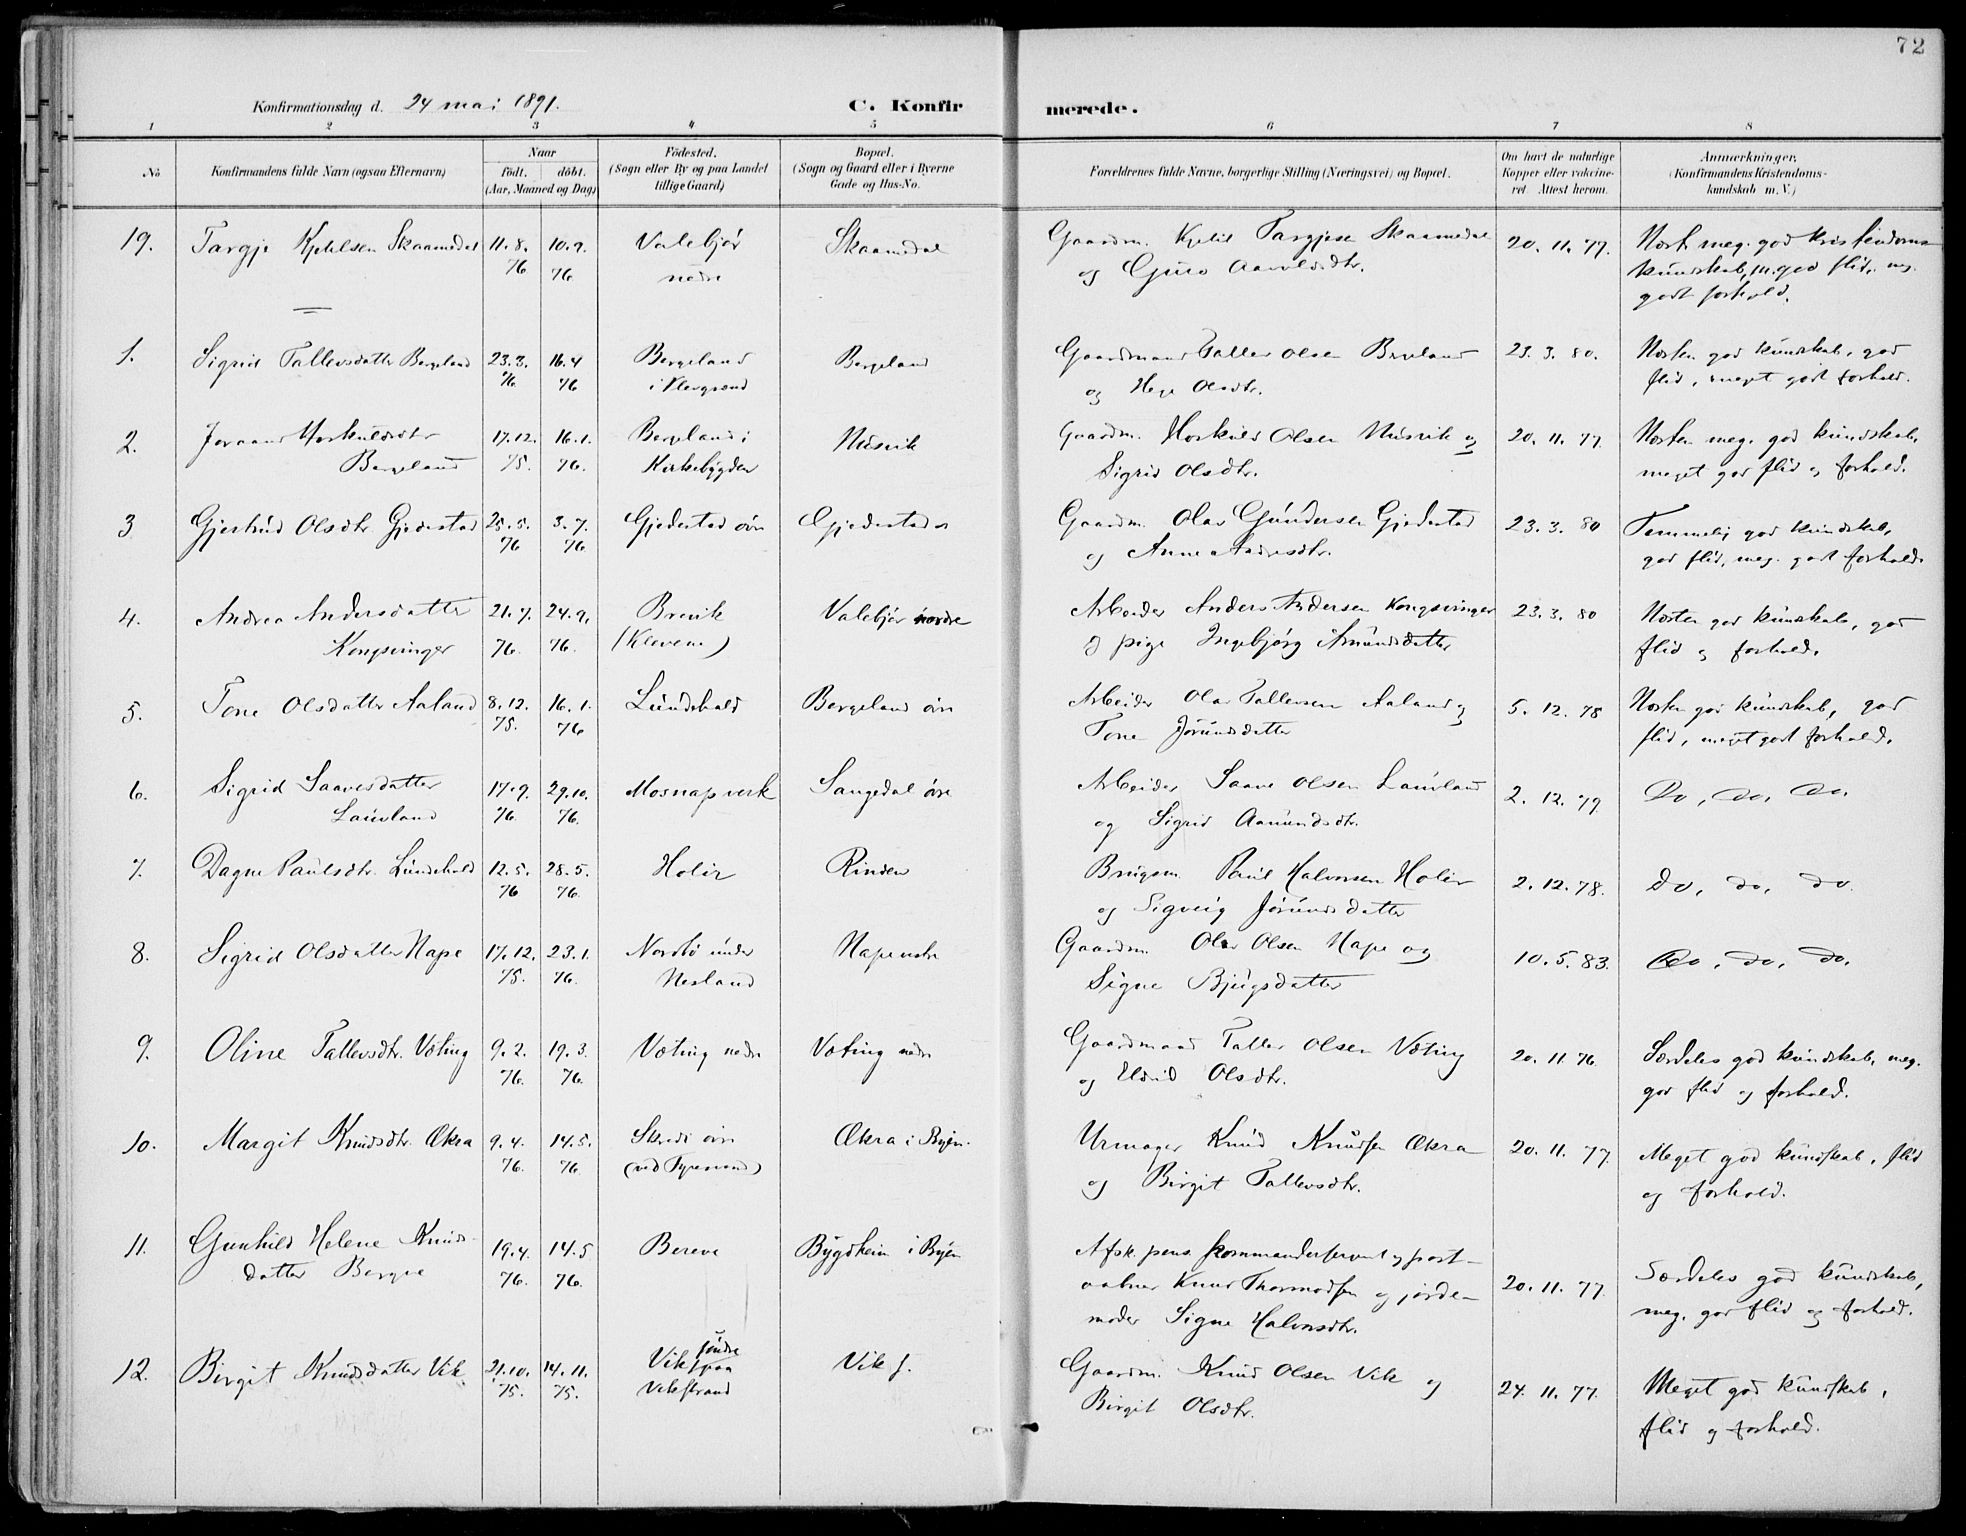 72
Konfirmationsdag d. 24 mai 1891.
C. Konfirmerede.
1 2 3 4 5 6 7 8
No
Konfirmandens fulde Navn (ogsaa Efternavn)
Naar
födt. döbt.
(Aar, Maaned og Dag)
Födested.
(Sogn eller By og paa Landet
tillige Gaard)
Bopæl.
(Sogn og Gaard eller i Byerne
Gade og Hus-No.
Forældrenes fulde Navne, borgerlige Stilling (Næringsvei) og Bopæl.
Om havt de naturlige
Kopper eller vakcine-
ret. Attest herom.
Anmærkninger,
(Konfirmandens Kristendoms-
kundskab m. V.)
19. Targje Kjetilsen Skaamedal 11.8. 10.9. Valebjør Skaamedal Gaardm. Kjetil Targjesen Skaamedal 20.11.77. Næst. meg. god kristendoms-
76 76 nedre og Guro kundskab, m. god flid, meg.
godt forhold.
1. Sigrid Tallevsdatter Bergeland 23.3. 16.4 Bergeland Bergeland Gaardmand Tallev Olsen Bergeland 23.3.80. Næsten god kundskab, god
76 76 og Hege Olsdtr. flid, meget godt forhold.
2. Joraand Horkuldsdtr 17.12. 16.1. Bergeland i Nusvik Gaardm. Horkuld Olsen Nusvik og 20.11.77. Næsten meg. god kundskab,
Bergeland 75. 76. Kirkebygden Sigrid Olsdtr. meget god flid og forhold.
3 Gjertrud Olsdtr. Gjedestad 25.5. 3.7. Gjedestad øvr Gjedestad ø Gaardm. Olav Gundersen Gjedestad 23.3.80 Temmelig god kundskab,
76 76. og Anne Andresdtr. god flid, meg. godt forhold.
4. Andrea Andersdatter 21.7. 24.9. Brevik Valebjør nordre Arbeider Anders Andersen Kongsvinger 23.3.80 Næsten god kundskab, god
Kongsvinger 76. 76. (Klevene) og pige Ingebjørg Amundsdatter flid og forhold.
5. Tone Olsdatter Aaland 8.12. 16.1. Lundskald Bergeland øvr Arbeider Olav Tallevsen Aaland og 5.12.78 Næsten god kundskab, god
75. 76 Tone Jørundsdatter flid, meget godt forhold.
6. Sigrid Saavesdatter 17.9. 29.10. Mosnapverk Sangedal øvre Arbeider Saave Olsen Lauvland 2.12.79 Do, do, do.
Lauvland 76. 76. og Sigrid Aamundsdtr.
7. Dagne Paulsdtr. Lundskald 12.5. 28.5. Holir Rinden Brugsm. Paul Halvorsen Holir 2.12.78. Do, do, do.
76 76. og Sigveig Jørundsdatter
8. Sigrid Olsdatter Nape 17.12. 23.1. Nordbø under Nape Gaardm. Olav Olsen Nape og 10.5.83. Do, do, do.
75. 76. Nesland Signe Bjugsdatter
9. Oline Tallevsdtr. Vøting 9.2. 19.3. Vøting nedr Vøting nedr Gaardmand Tallev Olsen Vøting 20.11.76. Særdeles god kundskab, meg.
76. 76. og Eldrid Olsdtr. god flid og forhold.
10. Margit Knudsdtr. Økra 9.4. 14.5. Skredi øvr Økra i Byen. Urmager Knud Knudsen Økra 20.11.77. Meget god kundskab, flid
76. 76. og Birgit Tallevsdtr. og forhold.
11. Gunhild Helene Knuds- 19.4. 14.5 Bereve Bygdheim i Byen Afsk. pens. kommandersersant og post-
datter Bergve 76. 76. aabner Knud Thormodsen og jorde- 20.11.77. Særdeles god kundskab,
moder Signe Halvorsdtr. meg. god flid og forhold.
12. Birgit Knudsdatter Vik 21.10. 14.11. Vik søndre paa Vik s. Gaardm. Knud Olsen Vik og 24.11.77. Meget god kundskab,
75. 75. Vikstrand Birgit Olsdtr. flid og forhold.